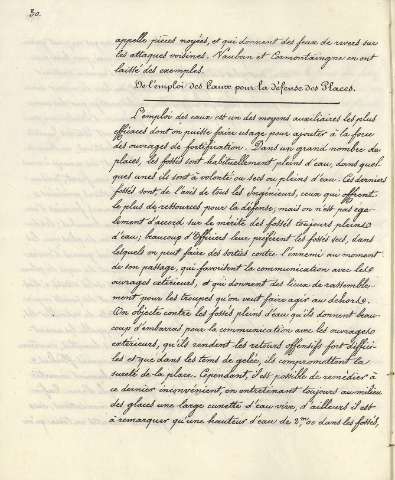 30.
appelle pièces noyées, et qui donnent des feux de revers sur
les attaques voisines. Vauban et Cormontaingne en ont
laissé des exemples.
De l'emploi des Eaux pour la défense des Places.
L'emploi des eaux est un des moyens auxiliaires les plus
efficaces dont on puisse faire usage pour ajouter à la force
des ouvrages de fortification. Dans un grand nombre de
places, les fossés sont habituellement pleins d'eau, dans quel
ques unes ils sont à volonté ou secs ou pleins d'eau. Ces derniers
fossés sont, de l'avis de tous les Ingénieurs, ceux qui offrent
le plus de ressources pour la défense; mais on n'est pas éga-
lement d'accord sur le mérite des fossés toujours pleins
d'eau; beaucoup d'Officiers leur préfèrent les fossés secs, dans
lesquels on peut faire des sorties contre l'ennemi au moment
de son passage, qui favorisent la communication avec les
ouvrages extérieurs, et qui donnent des lieux de rassemble-
ment pour les troupes qu'on veut faire agir au dehors.
On objecte contre les fossés pleins d'eau qu'ils donnent beau-
coup d'embarras pour la communication avec les ouvrages
extérieurs, qu'ils rendent les retours offensifs fort diffici-
les et que dans les tems de gelée, ils compromettent la
sureté de la place. Cependant, il est possible de remédier à
ce dernier inconvénient, en entretenant toujours au milieu
des glaces une large cunette d'eau vive, d'ailleurs il est
à remarquer qu'une hauteur d'eau de 2,m 00 dans les fossés,